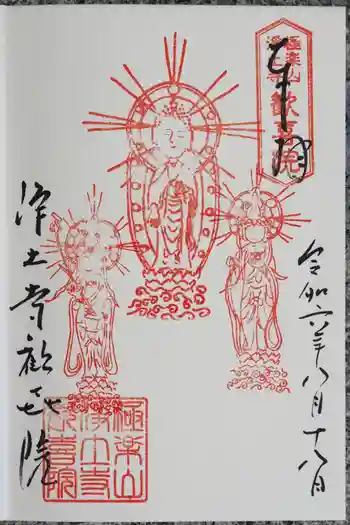 極楽山
浄土寺
歓喜院
令和六年八月十八日
浄土寺歓喜院
極楽山
浄土寺
歓喜院